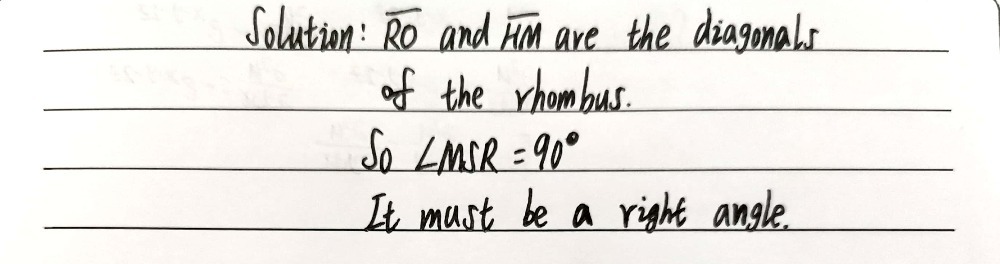 Solution: R̅O̅ and H̅M̅ are the diagonals
of the rhombus.
So ∠MSR = 90°
It must be a right angle.